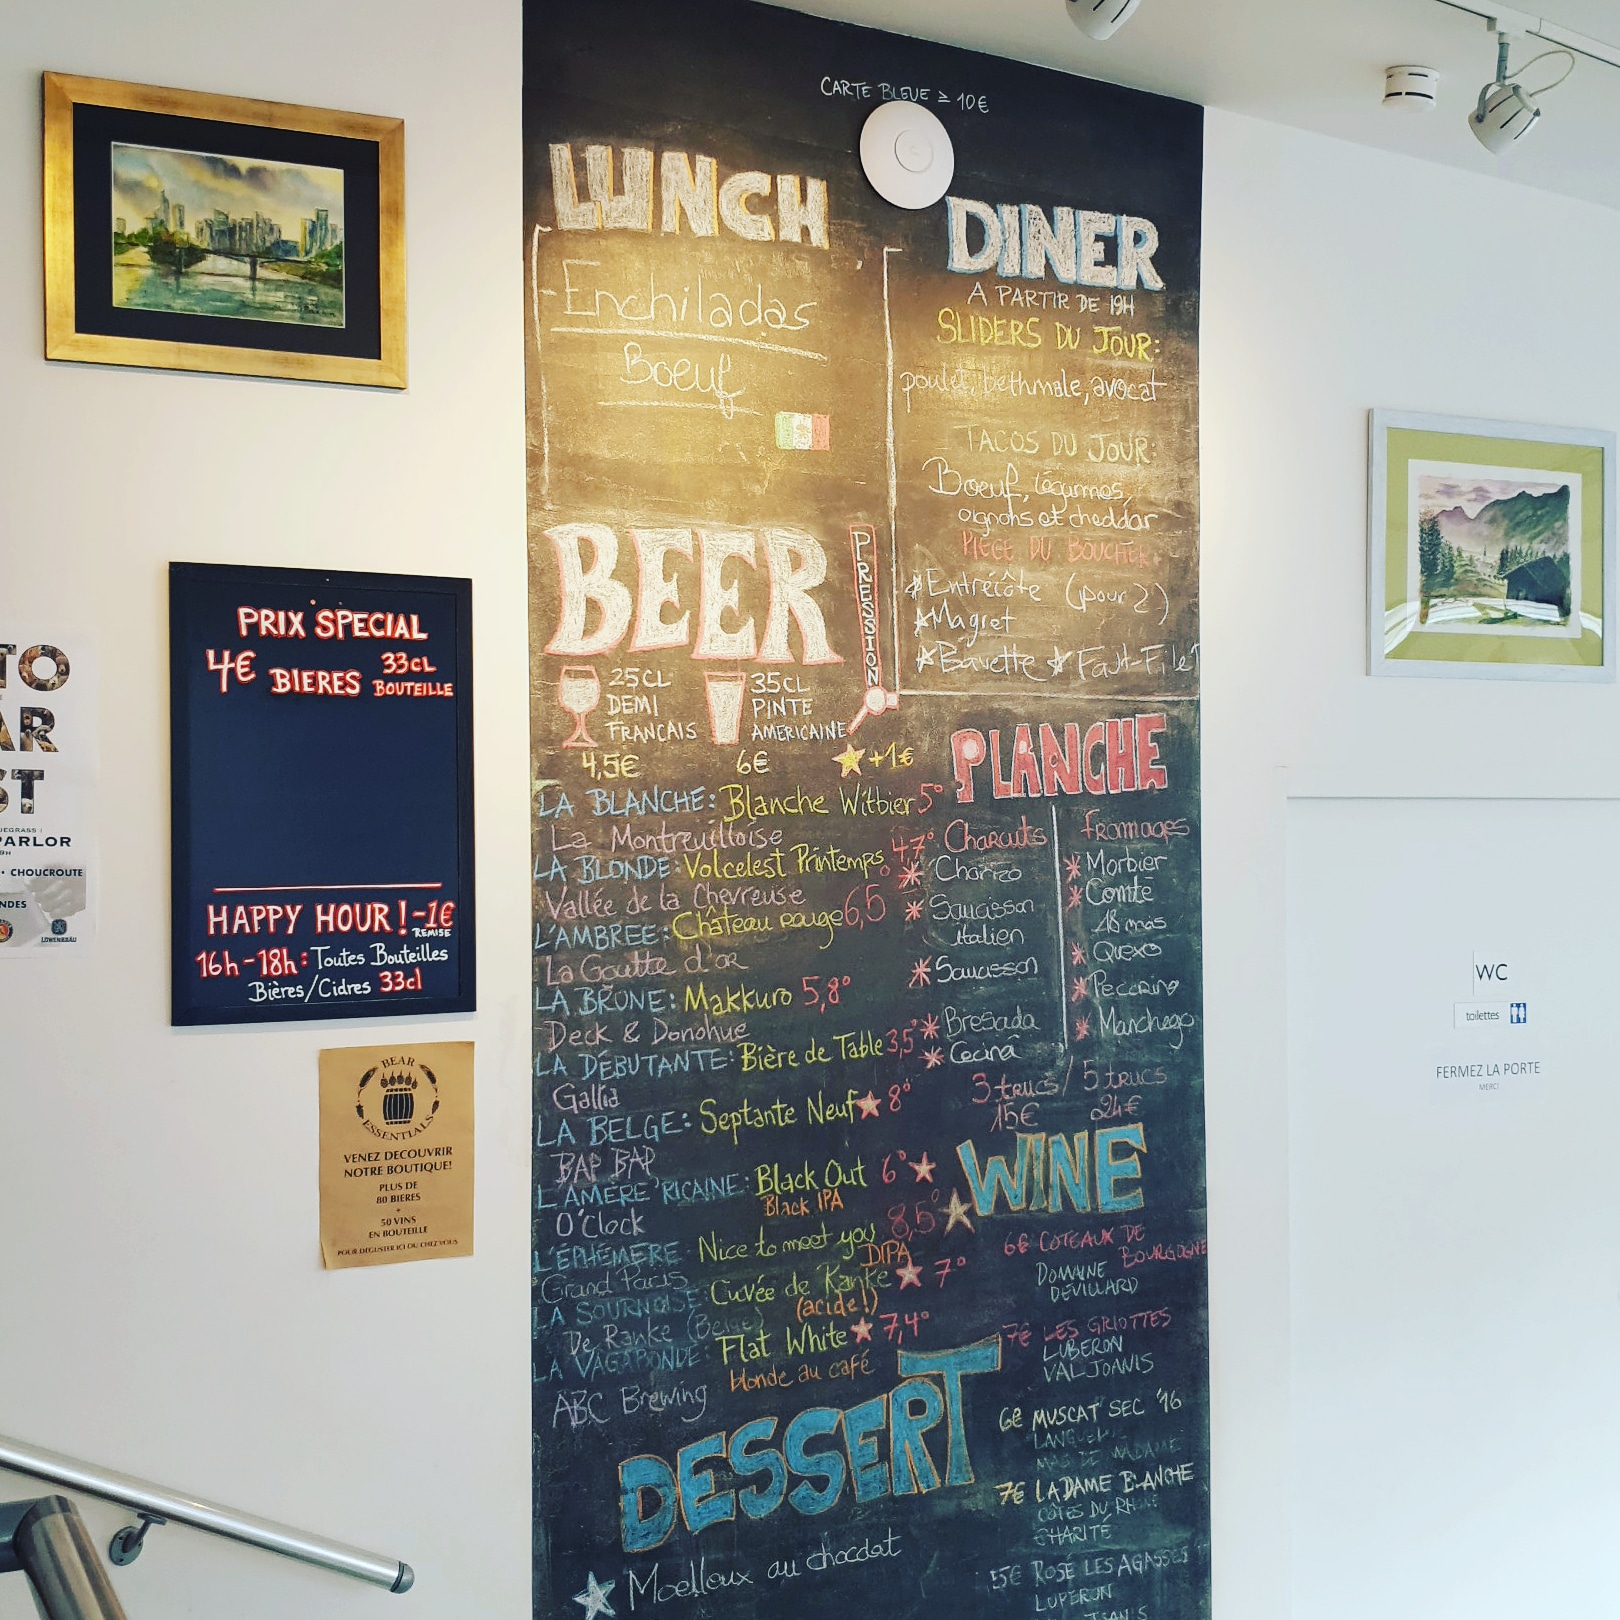 CARTE BLEUE ≥ 10€
LUNCH
Enchiladas
Boeuf
DINER
A PARTIR DE 19H
SLIDERS DU JOUR:
poulet, bethmale, avocat
TACOS DU JOUR:
Boeuf, légumes,
oignons et cheddar
PIECE DU BOUCHER
* Entrécôte (pour 2)
* Magret
* Bavette * Faux-Filet
BEER
PRESSION
25CL
DEMI
FRANCAIS
4,5€
35CL
PINTE
AMERICAINE
6€
★ +1€
LA BLANCHE: Blanche Witbier 5°
La Montreuilloise
LA BLONDE: Volcelest Printemps 4,7°
Vallée de la Chevreuse
L'AMBREE: Château rouge 6,5°
La Goutte d'or
LA BRUNE: Makkuro 5,8°
Deck & Donohue
LA DÉBUTANTE: Bière de Table 3,5°
Gallia
LA BELGE: Septante Neuf ★ 8°
BAP BAP
L'AMERE'RICAINE: Black Out 6° ★
Black IPA
O'Clock
L'EPHEMERE: Nice to meet you 8,5° ★
DIPA
Grand Paris
LA SOURNOISE: Cuvée de Ranke ★ 7°
(acide!)
De Ranke (Belge)
LA VAGABONDE: Flat White ★ 7,4°
blonde au café
ABC Brewing
PLANCHE
Charcuts
* Chorizo
* Saucisson
Italien
* Saucisson
* Bresada
* Cecina
Fromages
* Morbier
* Comté
18 mois
* Quexo
* Pecorino
* Manchego
3 trucs / 5 trucs
15€ 24€
WINE
6€ COTEAUX DE
BOURGOGNE
DOMAINE
DEVILLARD
7€ LES GRIOTTES
LUBERON
VAL JOANIS
6€ MUSCAT SEC '16
MAS DE MADAME
7€ LA DAME BLANCHE
CÔTES DU RHÔNE
CHARITÉ
ROSÉ LES AGASSES
LUBERON
DESSERT
★ Moelleux au chocolat
PRIX SPECIAL
4€ BIERES 33CL
BOUTEILLE
HAPPY HOUR! -1€
REMISE
16h-18h: Toutes Bouteilles
Bières/Cidres 33cl
BEAR
ESSENTIALS
VENEZ DECOUVRIR
NOTRE BOUTIQUE!
PLUS DE
80 BIERES
+
50 VINS
EN BOUTEILLE
POUR DEGUSTER ICI OU CHEZ VOUS
TO
AR
ST
UEGRASS :
PARLOR
• CHOUCROUTE
NDES
LÖWENBRÄU
WC
toilettes
FERMEZ LA PORTE
MERCI